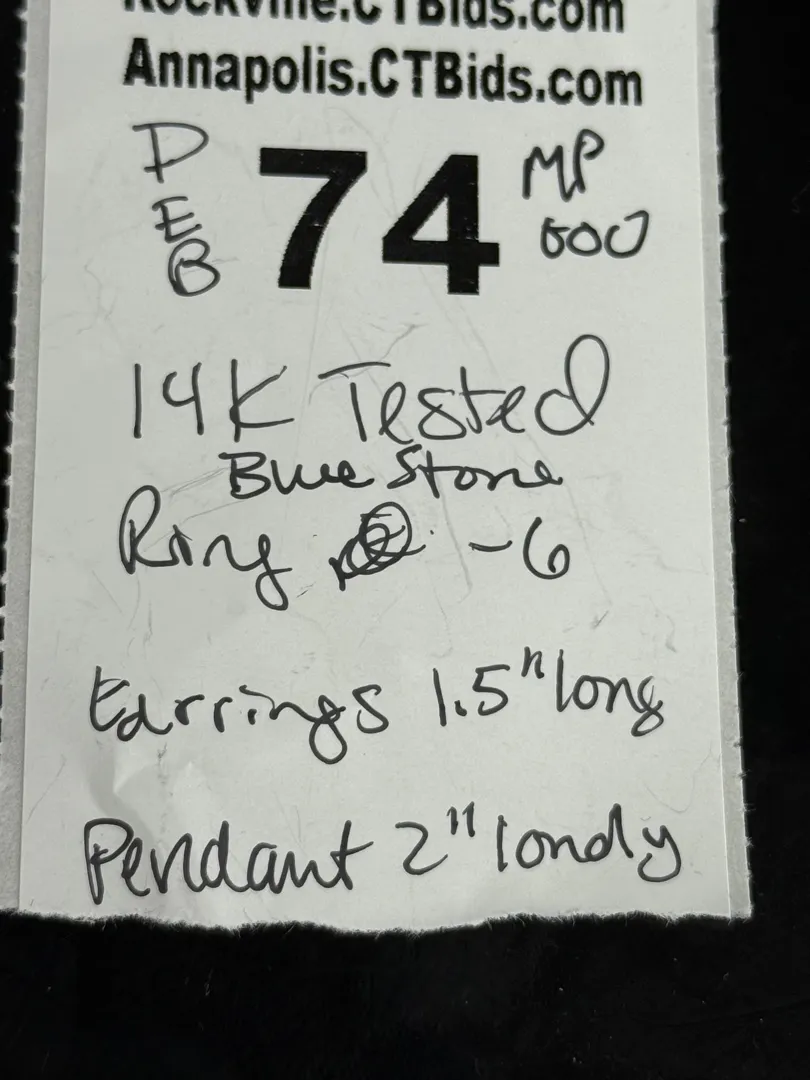 Rockville.CTBids.com
Annapolis.CTBids.com
DEB 74 MP
600
14K Tested
Blue Stone
Ring -6
Earrings 1.5" long
Pendant 2" londy